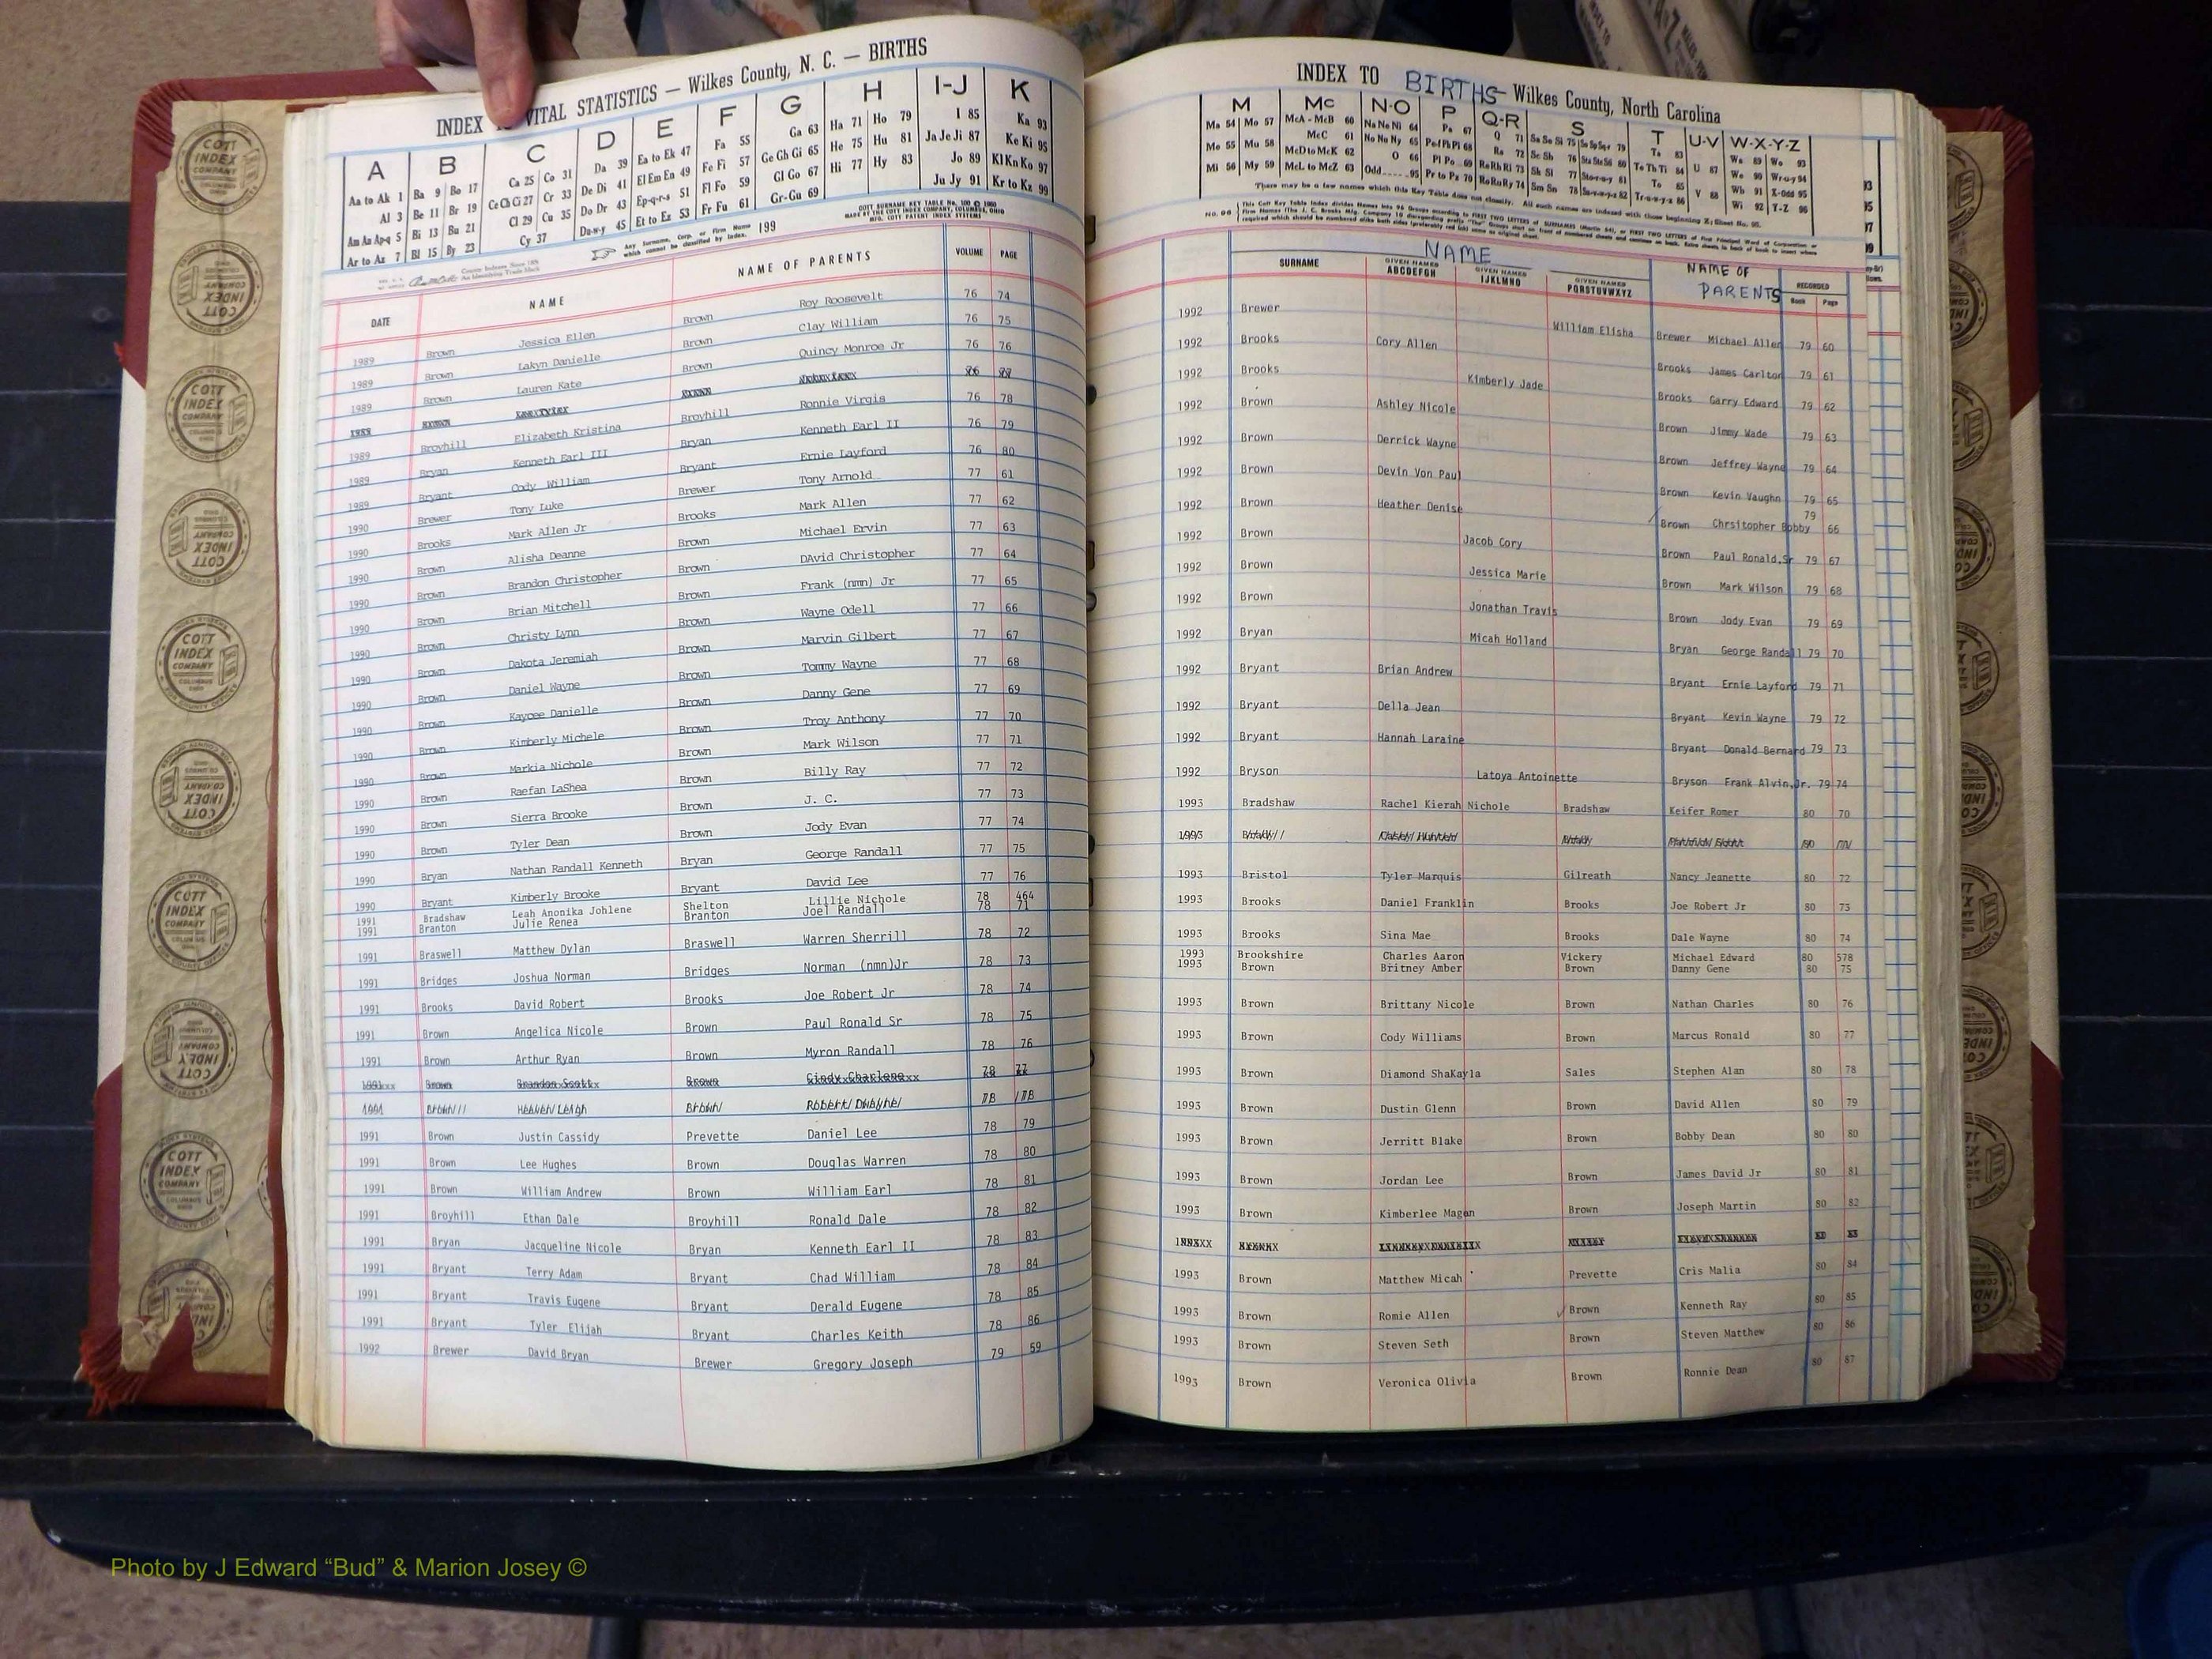 INDEX VITAL STATISTICS — Wilkes County, N. C. — BIRTHS
A B C D E F G H I-J K
Aa to Ak 1 Ba 9 Bo 17 Ca 25 Co 31 Da 39 Ea to Ek 47 Fa 55 Ga 63 Ha 71 Ho 79 I 85 Ka 93
Al 3 Be 11 Br 19 Ce Ch Ci 27 Cr 33 De Di 41 El Em En 49 Fe Fi 57 Ge Gh Gi 65 He 75 Hu 81 Ja Je Ji 87 Ke Ki 95
Am An Ap-q 5 Bi 13 Bu 21 Cl 29 Cu 35 Do Dr 43 Ep-q-r-s 51 Fl Fo 59 Gl Go 67 Hi 77 Hy 83 Jo 89 Kl Kn Ko 97
Ar to Az 7 Bl 15 By 23 Cy 37 Du-w-y 45 Et to Ez 53 Fr Fu 61 Gr-Gu 69 Ju Jy 91 Kr to Kz 99
Any Surname, Corp. or Firm Name which cannot be classified by Index. 199
DATE NAME NAME OF PARENTS VOLUME PAGE
1989 Brown Jessica Ellen Brown Roy Roosevelt 76 74
1989 Brown Lakyn Danielle Brown Clay William 76 75
1989 Brown Lauren Kate Brown Quincy Monroe Jr 76 76
1989 Broyhill Elizabeth Kristina Broyhill Ronnie Virgis 76 78
1989 Bryan Kenneth Earl III Bryan Kenneth Earl II 76 79
1989 Bryant Cody William Bryant Ernie Layford 76 80
1990 Brewer Tony Luke Brewer Tony Arnold 77 61
1990 Brooks Mark Allen Jr Brooks Mark Allen 77 62
1990 Brown Alisha Deanne Brown Michael Ervin 77 63
1990 Brown Brandon Christopher Brown DAvid Christopher 77 64
1990 Brown Brian Mitchell Brown Frank (nmn) Jr 77 65
1990 Brown Christy Lynn Brown Wayne Odell 77 66
1990 Brown Dakota Jeremiah Brown Marvin Gilbert 77 67
1990 Brown Daniel Wayne Brown Tommy Wayne 77 68
1990 Brown Kaycee Danielle Brown Danny Gene 77 69
1990 Brown Kimberly Michele Brown Troy Anthony 77 70
1990 Brown Markia Nichole Brown Mark Wilson 77 71
1990 Brown Raefan LaShea Brown Billy Ray 77 72
1990 Brown Sierra Brooke Brown J. C. 77 73
1990 Brown Tyler Dean Brown Jody Evan 77 74
1990 Bryan Nathan Randall Kenneth Bryan George Randall 77 75
1990 Bryant Kimberly Brooke Bryant David Lee 77 76
1991 Bradshaw Leah Anonika Johlene Shelton Lillie Nichole 78 464
1991 Branton Julie Renea Branton Joel Randall 78 71
1991 Braswell Matthew Dylan Braswell Warren Sherrill 78 72
1991 Bridges Joshua Norman Bridges Norman (nmn)Jr 78 73
1991 Brooks David Robert Brooks Joe Robert Jr 78 74
1991 Brown Angelica Nicole Brown Paul Ronald Sr 78 75
1991 Brown Arthur Ryan Brown Myron Randall 78 76
1991xx Brown Brandon Scott Brown Cindy Charlene 78 77
1991 Brown Heaven Leigh Brown Robert Dwayne 78 78
1991 Brown Justin Cassidy Prevette Daniel Lee 78 79
1991 Brown Lee Hughes Brown Douglas Warren 78 80
1991 Brown William Andrew Brown William Earl 78 81
1991 Broyhill Ethan Dale Broyhill Ronald Dale 78 82
1991 Bryan Jacqueline Nicole Bryan Kenneth Earl II 78 83
1991 Bryant Terry Adam Bryant Chad William 78 84
1991 Bryant Travis Eugene Bryant Derald Eugene 78 85
1991 Bryant Tyler Elijah Bryant Charles Keith 78 86
1992 Brewer David Bryan Brewer Gregory Joseph 79 59
INDEX TO BIRTHS — Wilkes County, North Carolina
M Mc N-O P Q-R S T U-V W-X-Y-Z
There may be a few names which this Key Table does not classify. All such names are indexed with those beginning Z; Sheet No. 95.
NAME
SURNAME GIVEN NAMES ABCDEFGH GIVEN NAMES IJKLMNO GIVEN NAMES PQRSTUVWXYZ NAME OF PARENTS RECORDED Book Page
1992 Brewer William Elisha Brewer Michael Allen 79 60
1992 Brooks Cory Allen Brooks James Carlton 79 61
1992 Brooks Kimberly Jade Brooks Garry Edward 79 62
1992 Brown Ashley Nicole Brown Jimmy Wade 79 63
1992 Brown Derrick Wayne Brown Jeffrey Wayne 79 64
1992 Brown Devin Von Paul Brown Kevin Vaughn 79 65
1992 Brown Heather Denise Brown Chrsitopher Bobby 79 66
1992 Brown Jacob Cory Brown Paul Ronald,Sr 79 67
1992 Brown Jessica Marie Brown Mark Wilson 79 68
1992 Brown Jonathan Travis Brown Jody Evan 79 69
1992 Bryan Micah Holland Bryan George Randall 79 70
1992 Bryant Brian Andrew Bryant Ernie Layford 79 71
1992 Bryant Della Jean Bryant Kevin Wayne 79 72
1992 Bryant Hannah Laraine Bryant Donald Bernard 79 73
1992 Bryson Latoya Antoinette Bryson Frank Alvin,Jr. 79 74
1993 Bradshaw Rachel Kierah Nichole Bradshaw Keifer Romer 80 70
1993 Bristol Tyler Marquis Gilreath Nancy Jeanette 80 72
1993 Brooks Daniel Franklin Brooks Joe Robert Jr 80 73
1993 Brooks Sina Mae Brooks Dale Wayne 80 74
1993 Brookshire Charles Aaron Vickery Michael Edward 80 578
1993 Brown Britney Amber Brown Danny Gene 80 75
1993 Brown Brittany Nicole Brown Nathan Charles 80 76
1993 Brown Cody Williams Brown Marcus Ronald 80 77
1993 Brown Diamond ShaKayla Sales Stephen Alan 80 78
1993 Brown Dustin Glenn Brown David Allen 80 79
1993 Brown Jerritt Blake Brown Bobby Dean 80 80
1993 Brown Jordan Lee Brown James David Jr 80 81
1993 Brown Kimberlee Magan Brown Joseph Martin 80 82
1993 Brown Matthew Micah Prevette Cris Malia 80 84
1993 Brown Romie Allen Brown Kenneth Ray 80 85
1993 Brown Steven Seth Brown Steven Matthew 80 86
1993 Brown Veronica Olivia Brown Ronnie Dean 80 87
COTT INDEX COMPANY
Photo by J Edward “Bud” & Marion Josey ©